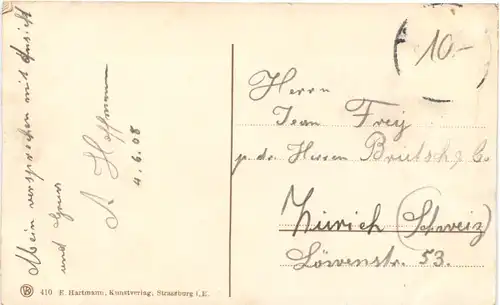 Mein versprochen mit Ansicht
und Gruss
A Hoffmann
4.6.08
10.-
Herrn
Jean Frey
p. adr. Herren Brutsch & C.
Zürich (Schweiz)
Löwenstr. 53.
410 E. Hartmann, Kunstverlag, Strassburg i. E.